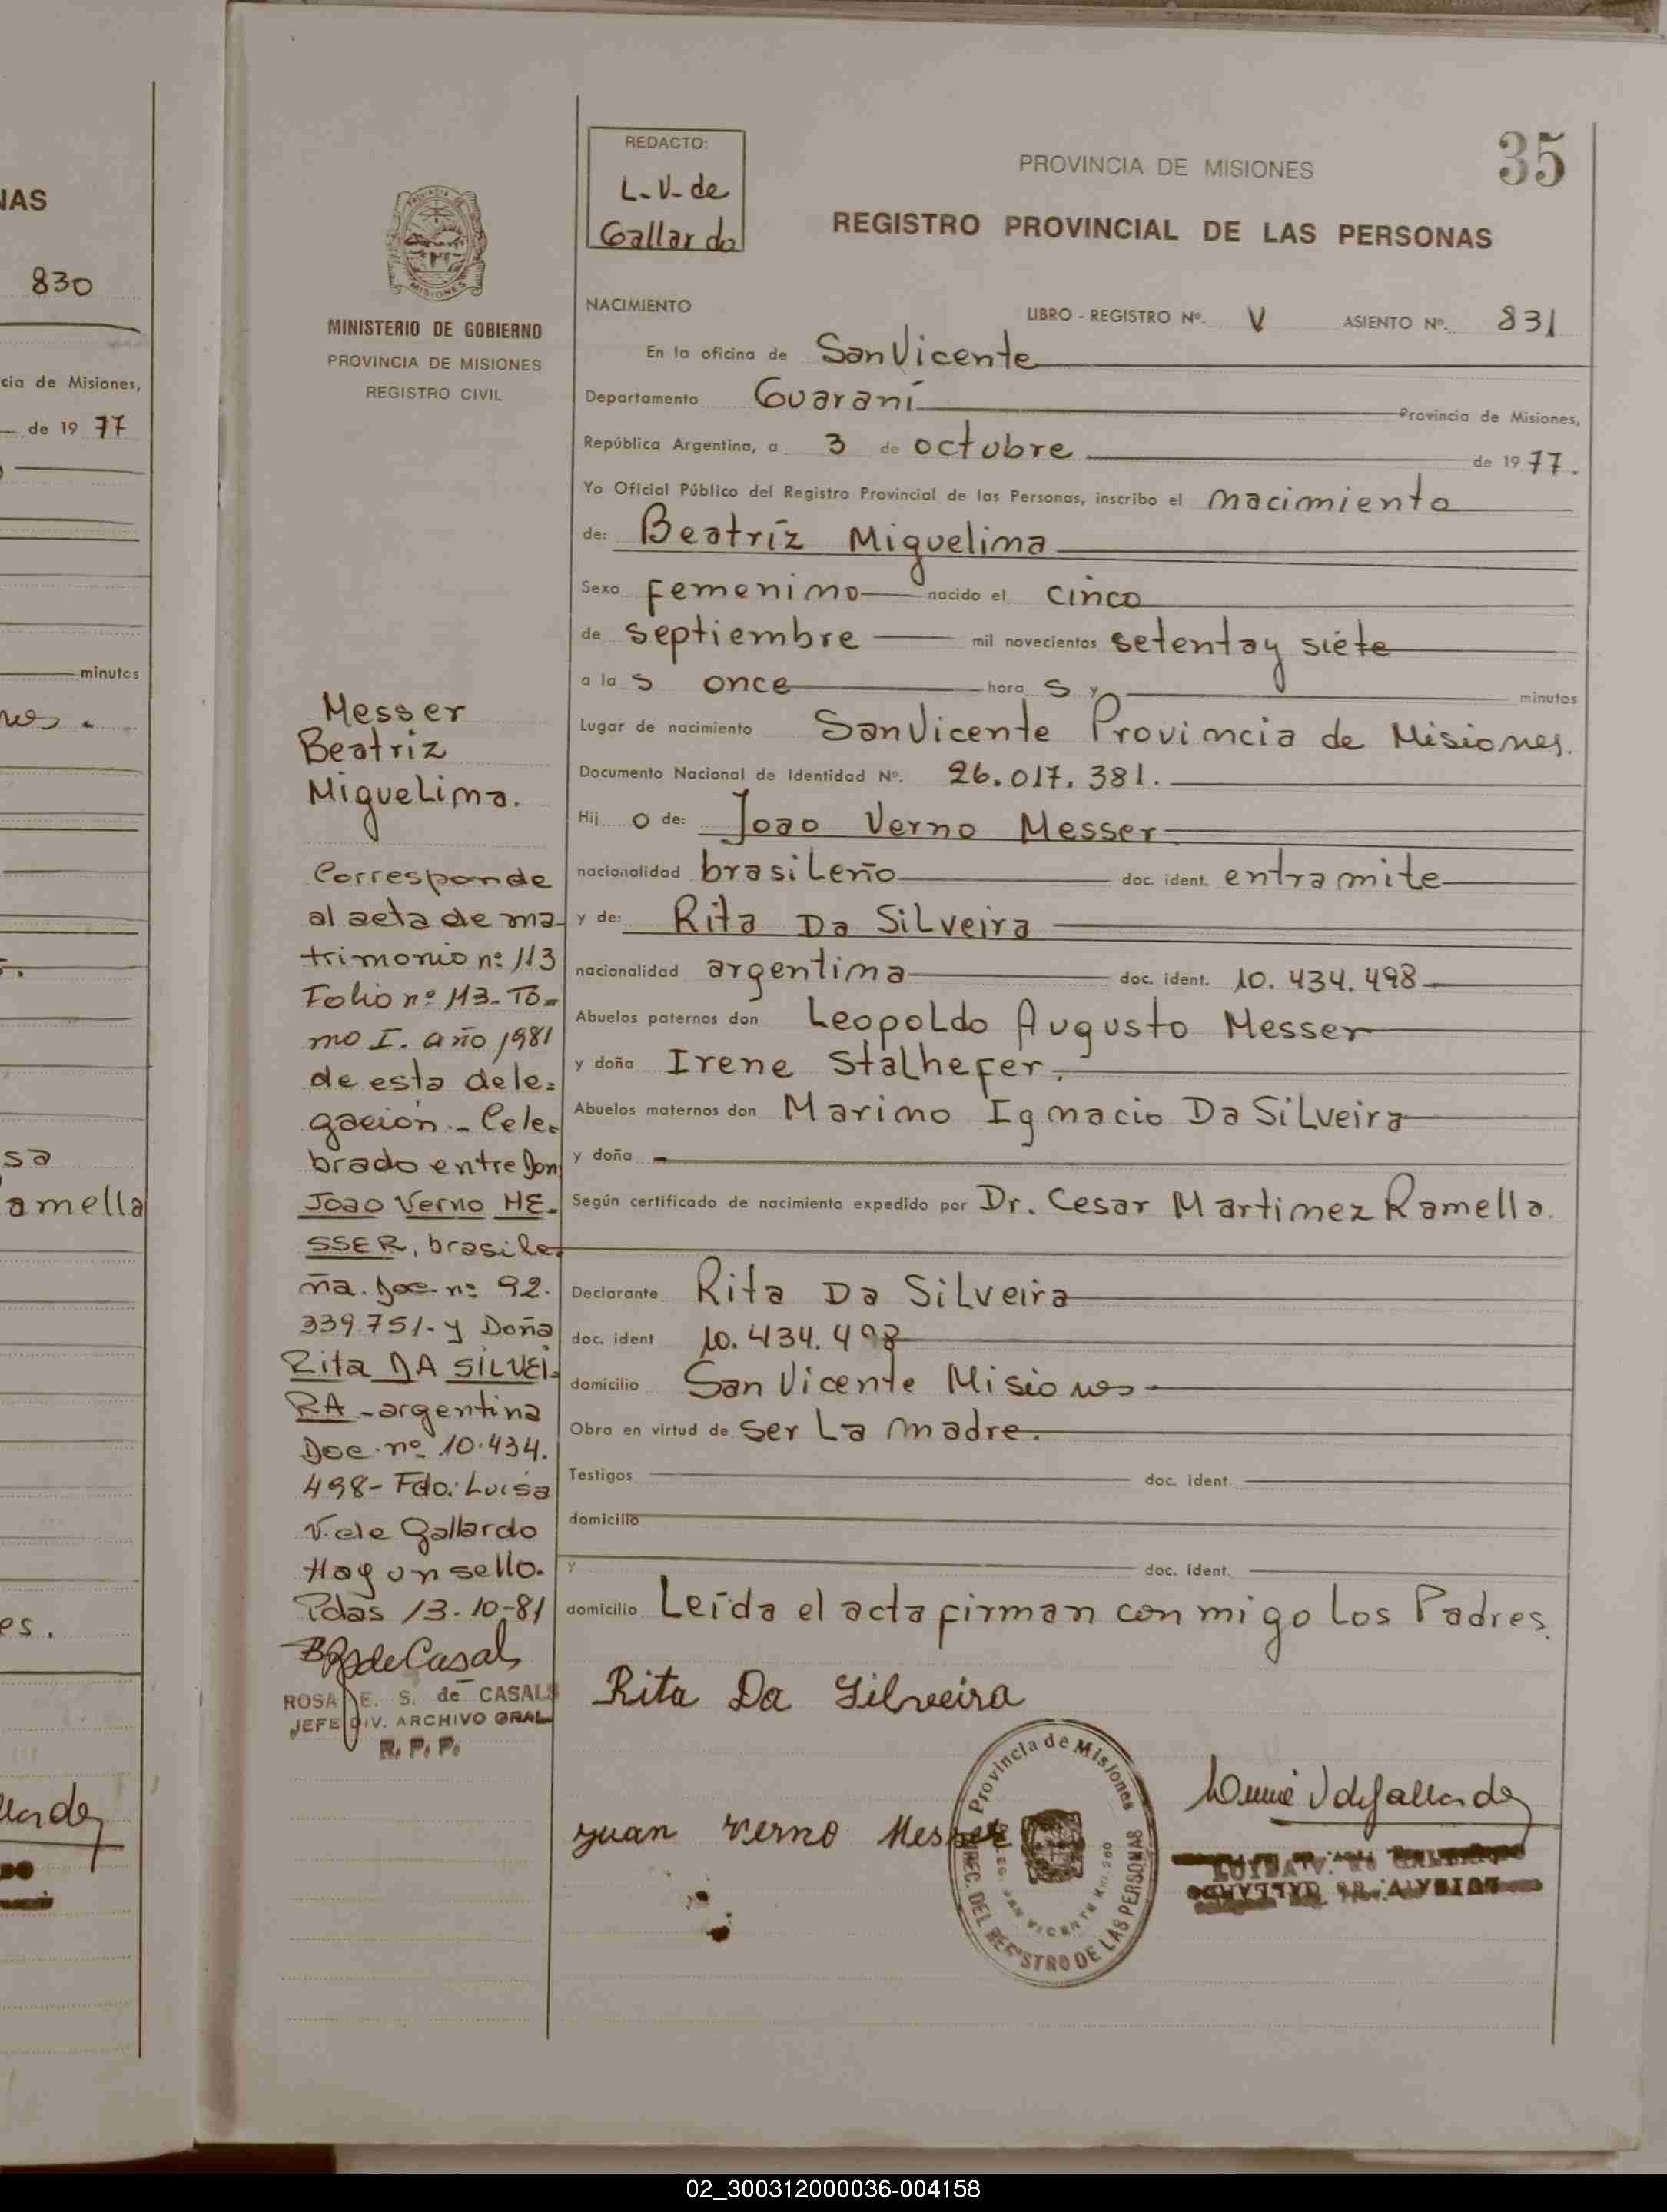 NAS
830
cia de Misiones,
de 19 77
minutos
nes.
sa
amella
es.
MINISTERIO DE GOBIERNO
PROVINCIA DE MISIONES
REGISTRO CIVIL
Messer
Beatriz
Miguelina.
Corresponde
al acta de ma-
trimonio nº 113
Folio nº 113- To-
mo I. año 1981
de esta dele-
gación.- Cele-
brado entre Don
Joao Verno ME-
SSER, brasile-
ña. Doc. nº 92.
339.751- y Doña
Rita DA SILVEI-
RA - argentina
Doc. nº 10.434.
498- Fdo: Luisa
V. de Gallardo
Hay un sello.
Pdas 13-10-81
ROSA E. S. de CASALS
JEFE DIV. ARCHIVO GRAL.
R. P. P.
REDACTO:
L. V. de
Gallardo
PROVINCIA DE MISIONES
35
REGISTRO PROVINCIAL DE LAS PERSONAS
NACIMIENTO LIBRO - REGISTRO Nº. V ASIENTO Nº. 831
En la oficina de San Vicente
Departamento Guaraní Provincia de Misiones,
República Argentina, a 3 de octubre de 19 77.
Yo Oficial Público del Registro Provincial de las Personas, inscribo el nacimiento
de: Beatríz Miguelina
Sexo femenino nacido el cinco
de septiembre mil novecientos setenta y siete
a la s once hora s y minutos
Lugar de nacimiento San Vicente Provincia de Misiones.
Documento Nacional de Identidad Nº. 26.017.381.
Hij o de: Joao Verno Messer
nacionalidad brasileño doc. ident. en tramite
y de: Rita Da Silveira
nacionalidad argentina doc. ident. 10.434.498
Abuelos paternos don Leopoldo Augusto Messer
y doña Irene Stalhefer.
Abuelos maternos don Marino Ignacio Da Silveira
y doña -
Según certificado de nacimiento expedido por Dr. Cesar Martinez Ramella.
Declarante Rita Da Silveira
doc. ident 10.434.498
domicilio San Vicente Misiones
Obra en virtud de ser la madre.
Testigos doc. ident.
domicilio
y doc. ident.
domicilio Leída el acta firman conmigo los Padres.
Rita Da Silveira
Juan Verno Messer
Provincia de Misiones
DIREC. DEL REGISTRO DE LAS PERSONAS
02_300312000036-004158